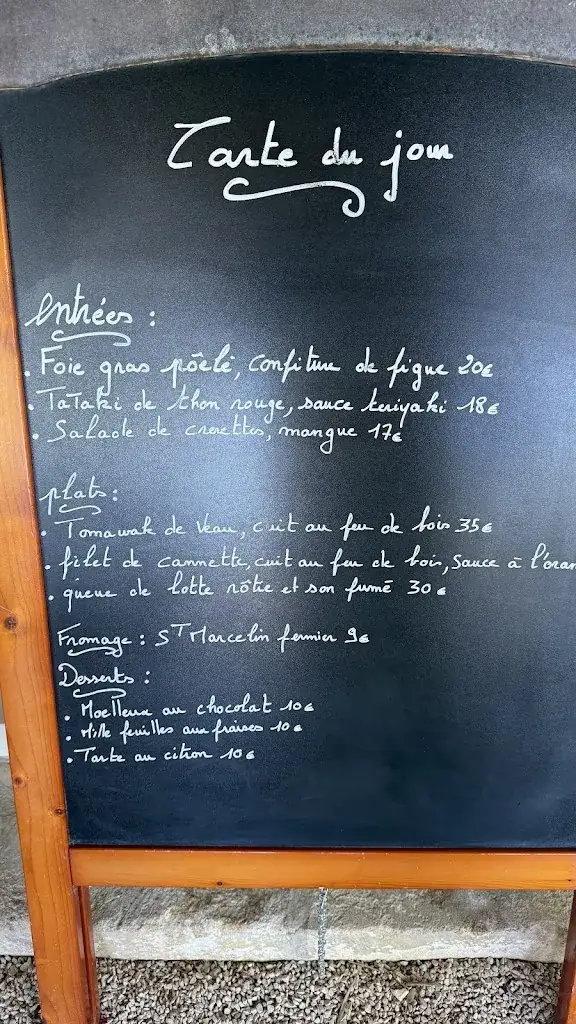 Tarte du jour
Entrées :
. Foie gras pôêlé, confiture de figue 20€
. TaTaki de thon rouge, sauce teriyaki 18€
. Salade de crevettes, mangue 17€
plats :
. Tomawak de Veau, cuit au feu de bois 35€
. filet de cannette, cuit au feu de bois, Sauce à l'oran
. queue de lotte rôtie et son fumé 30€
Fromage : ST Marcelin fermier 9€
Desserts :
. Moelleux au chocolat 10€
. Mille feuilles aux fraises 10€
. Tarte au citron 10€